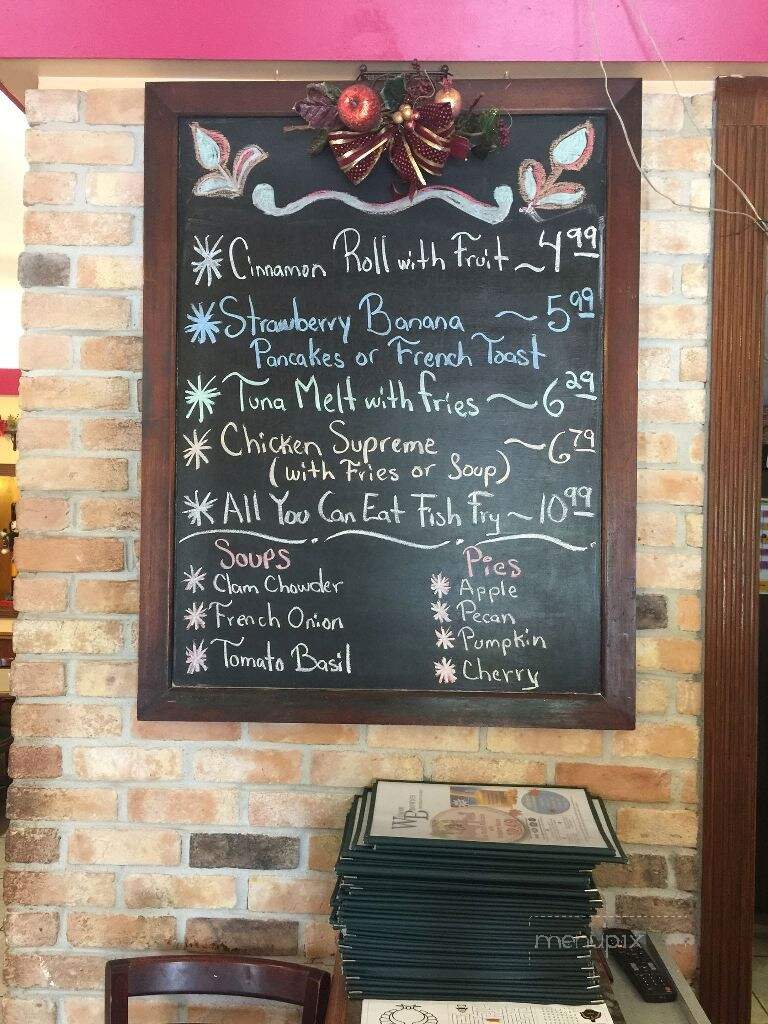 Cinnamon Roll with Fruit ~ 4.99
Strawberry Banana ~ 5.99
Pancakes or French Toast
Tuna Melt with fries ~ 6.29
Chicken Supreme ~ 6.79
(with Fries or Soup)
All You Can Eat Fish Fry ~ 10.99
Soups
Clam Chowder
French Onion
Tomato Basil
Pies
Apple
Pecan
Pumpkin
Cherry
menupix